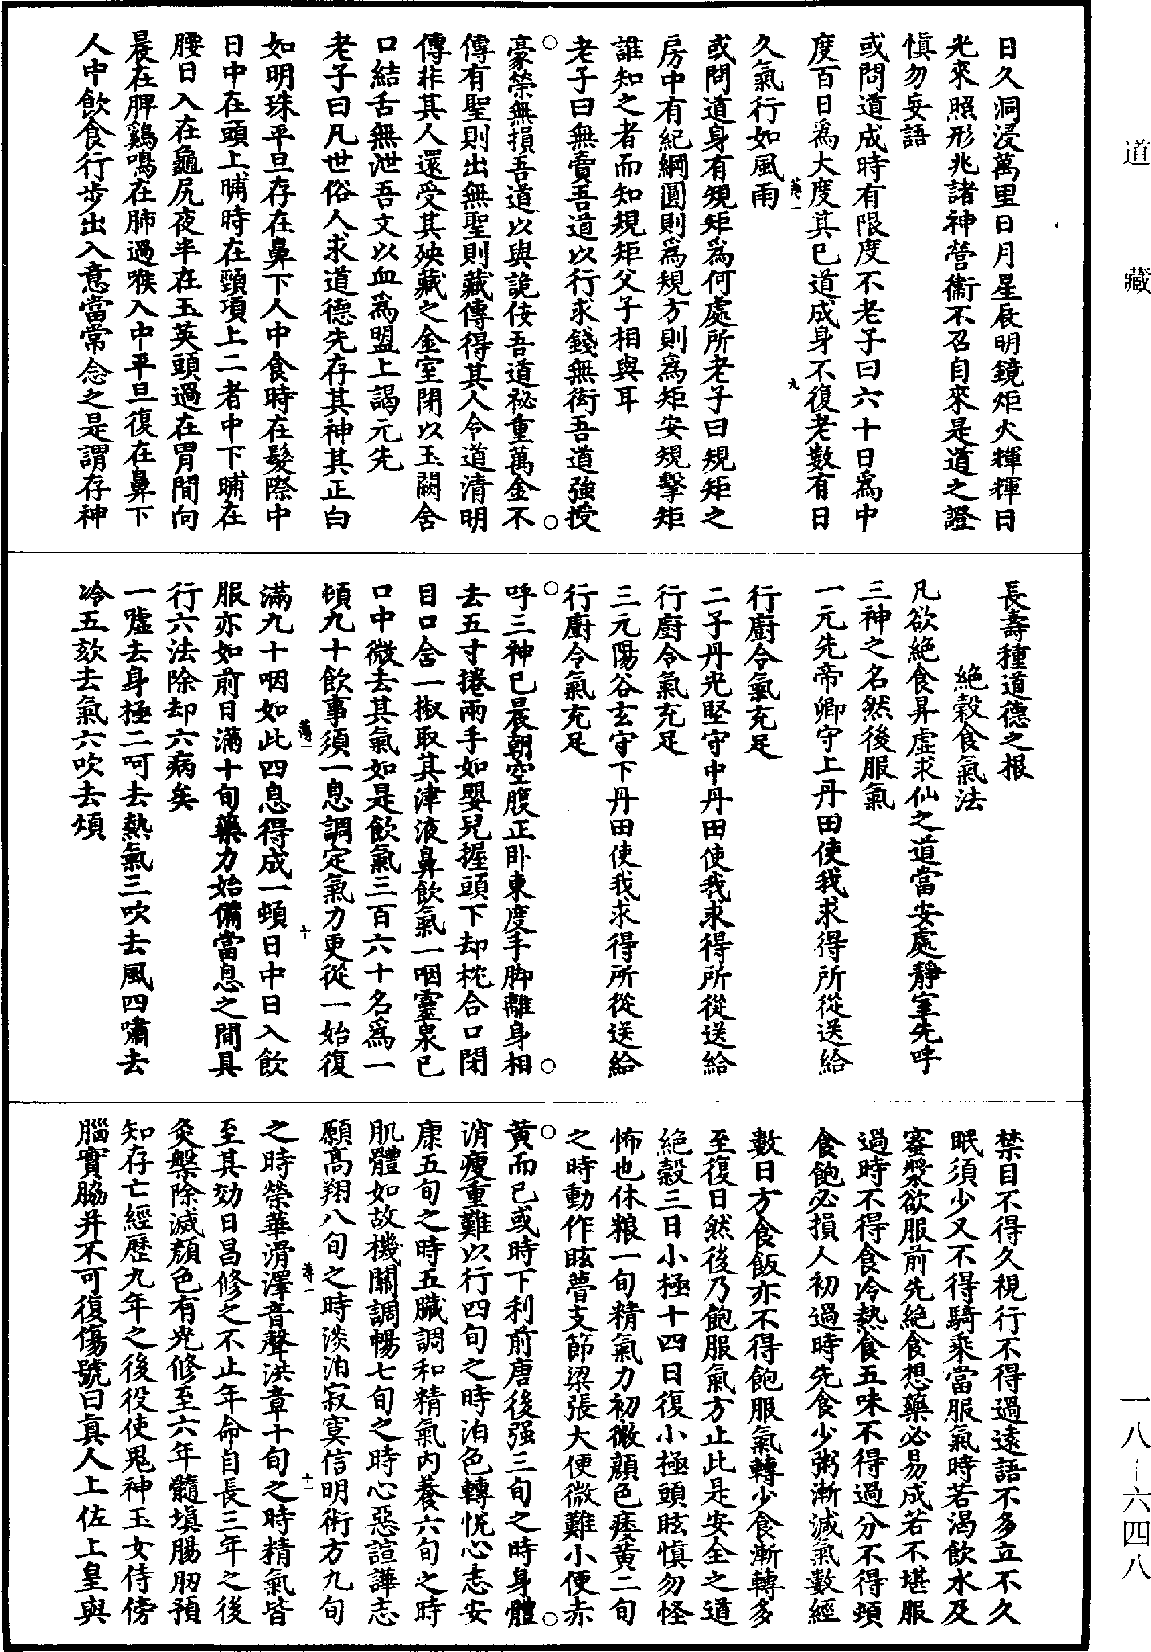 日久洞浸萬里日月星辰明鏡炬火輝輝日
光來照形兆諸神營衞不召自來是道之證
愼勿妄語
或問道成時有限度不老子曰六十日爲中
度百日爲大度其已道成身不復老數有日
久氣行如風雨
或問道身有規矩爲何處所老子曰規矩之
房中有紀綱圓則爲規方則爲矩安規擊矩
誰知之者而知規矩父子相與耳
老子曰無賣吾道以行求錢無衒吾道強授
豪榮無損吾道以與詭佞吾道祕重萬金不
傳有聖則出無聖則藏傳得其人令道清明
傳非其人還受其殃藏之金室閉以玉闕含
口結舌無泄吾文以血爲盟上謁元先
老子曰凡世俗人求道德先存其神其正白
如明珠平旦存在鼻下人中食時在髮際中
日中在頭上晡時在頸項上二者中下晡在
腰日入在龜尻夜半在玉英頭過在胃間向
晨在脾鷄鳴在肺過喉入中平旦復在鼻下
人中飲食行步出入意當常念之是謂存神
長壽種道德之根
絶穀食氣法
凡欲絶食昇虛求仙之道當安處靜室先呼
三神之名然後服氣
一元先帝卿守上丹田使我求得所從送給
行廚令氣充足
二子丹光堅守中丹田使我求得所從送給
行廚令氣充足
三元陽谷玄守下丹田使我求得所從送給
行廚令氣充足
呼三神已晨朝空腹正卧東度手脚離身相
去五寸捲兩手如嬰兒握頭下却枕合口閉
目口含一椒取其津液鼻飲氣一咽靈泉已
口中微去其氣如是飲氣三百六十名爲一
頓九十飲事須一息調定氣力更從一始復
滿九十咽如此四息得成一頓日中日入飲
服亦如前日滿十旬藥力始備當息之間具
行六法除却六病矣
一噓去身極二呵去熱氣三吹去風四嘯去
冷五欬去氣六吹去煩
禁目不得久視行不得過遠語不多立不久
眠須少又不得騎乘當服氣時若渴飲水及
蜜漿欲服前先絶食想藥必易成若不堪服
過時不得食冷熱食五味不得過分不得頭
食飽必損人初過時先食少粥漸減氣數經
數日方食飯亦不得飽服氣轉少食漸轉多
至復日然後乃飽服氣方止此是安全之道
絶穀三日小極十四日復小極頭眩愼勿怪
怖也休粮一旬精氣力初微顔色痿黃二旬
之時動作眩瞢支節梁張大便微難小便赤
黃而已或時下利前唐後强三旬之時身體
消瘦重難以行四旬之時泊色轉悦心志安
康五旬之時五臟調和精氣內養六旬之時
肌體如故機關調暢七旬之時心惡諠譁志
願高翔八旬之時淡泊寂寞信明術方九旬
之時榮華滑澤音聲洪章十旬之時精氣皆
至其効日昌修之不止年命自長三年之後
灸槃除滅顔色有光修至六年髓塡腸肕預
知存亡經歷九年之後役使鬼神玉女侍傍
腦實脇并不可復傷號曰眞人上佐上皇與
道藏
一八―六四八